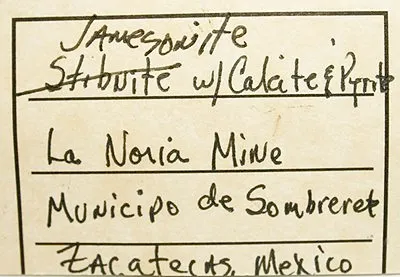 Jamesonite
Stibnite w/ Calcite & Pyrite
La Noria Mine
Municipo de Sombrerete
Zacatecas, Mexico